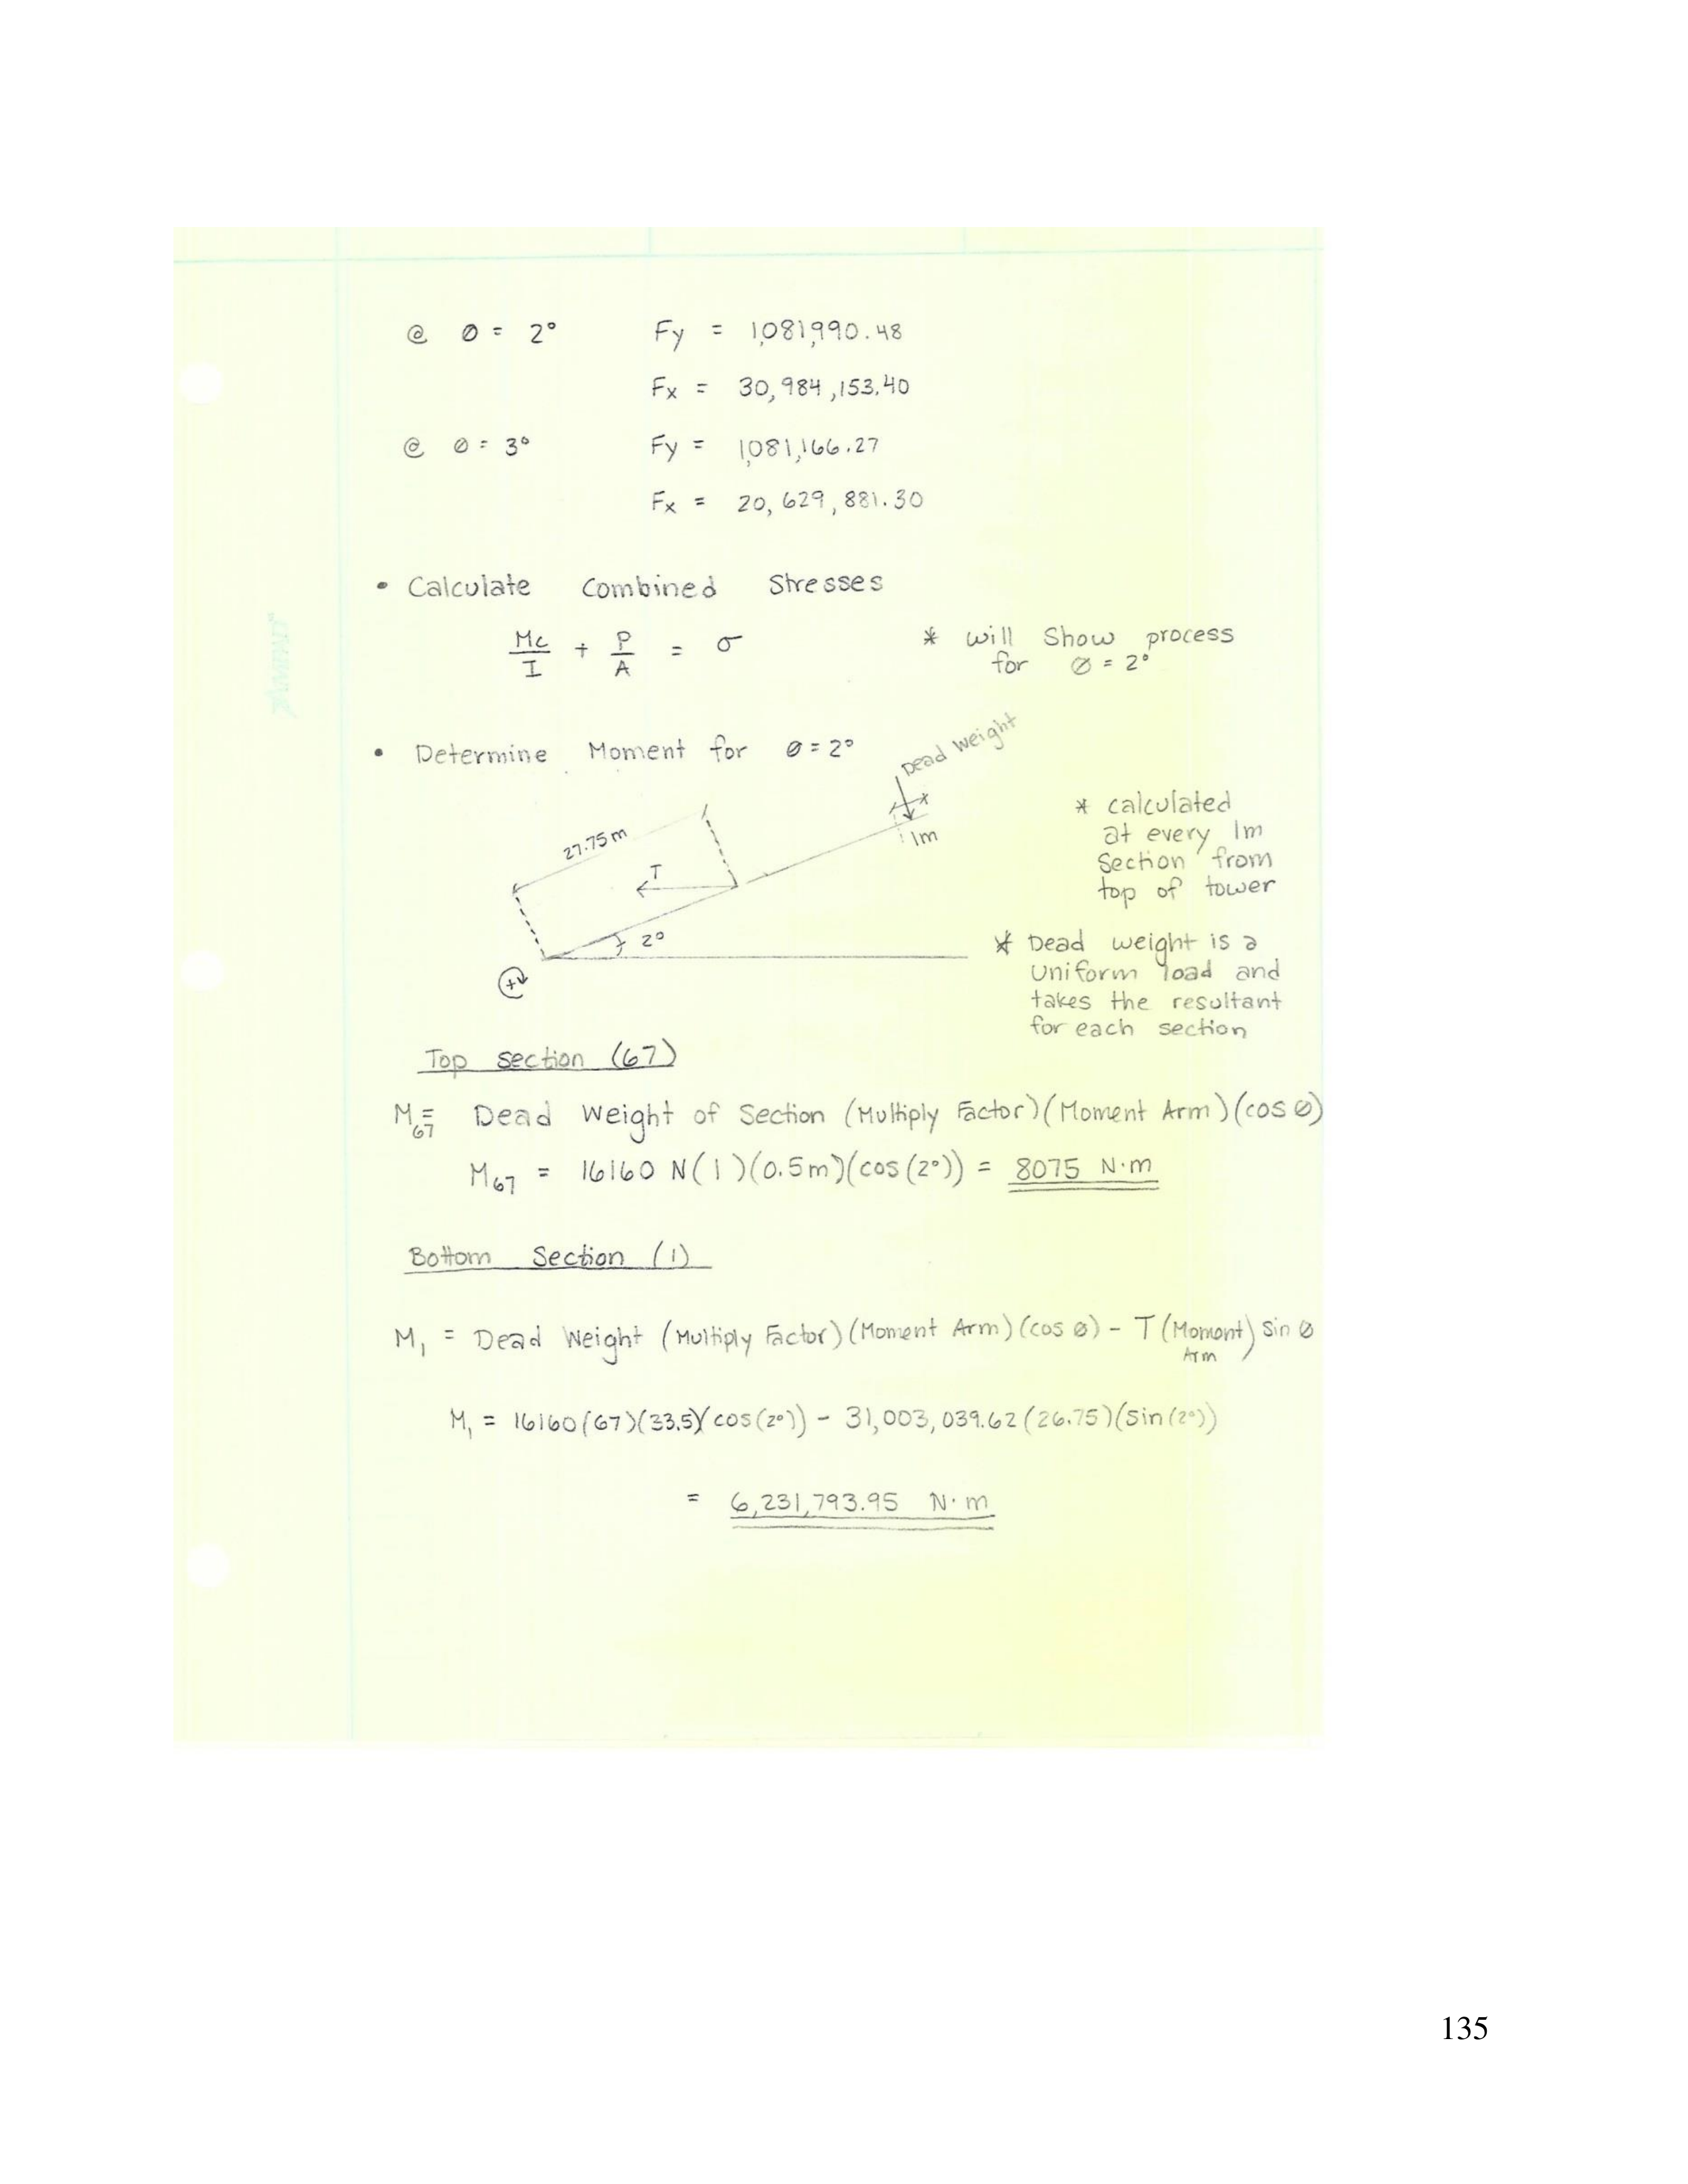 @ ∅ = 2° Fy = 1,081,990.48
Fx = 30,984,153.40
@ ∅ = 3° Fy = 1,081,166.27
Fx = 20,629,881.30
• Calculate Combined Stresses
Mc/I + P/A = σ * will Show process
for ∅ = 2°
• Determine Moment for ∅ = 2°
Dead Weight
27.75m
T
1m
2°
+
* calculated
at every 1m
Section from
top of tower
* Dead weight is a
Uniform load and
takes the resultant
for each section
Top section (67)
M67 = Dead Weight of Section (Multiply Factor)(Moment Arm)(cos ∅)
M67 = 16160 N(1)(0.5m)(cos(2°)) = 8075 N·m
Bottom Section (1)
M1 = Dead Weight (Multiply Factor)(Moment Arm)(cos ∅) - T(Moment Arm) Sin ∅
M1 = 16160(67)(33.5)(cos(2°)) - 31,003,039.62(26.75)(Sin(2°))
= 6,231,793.95 N·m
135